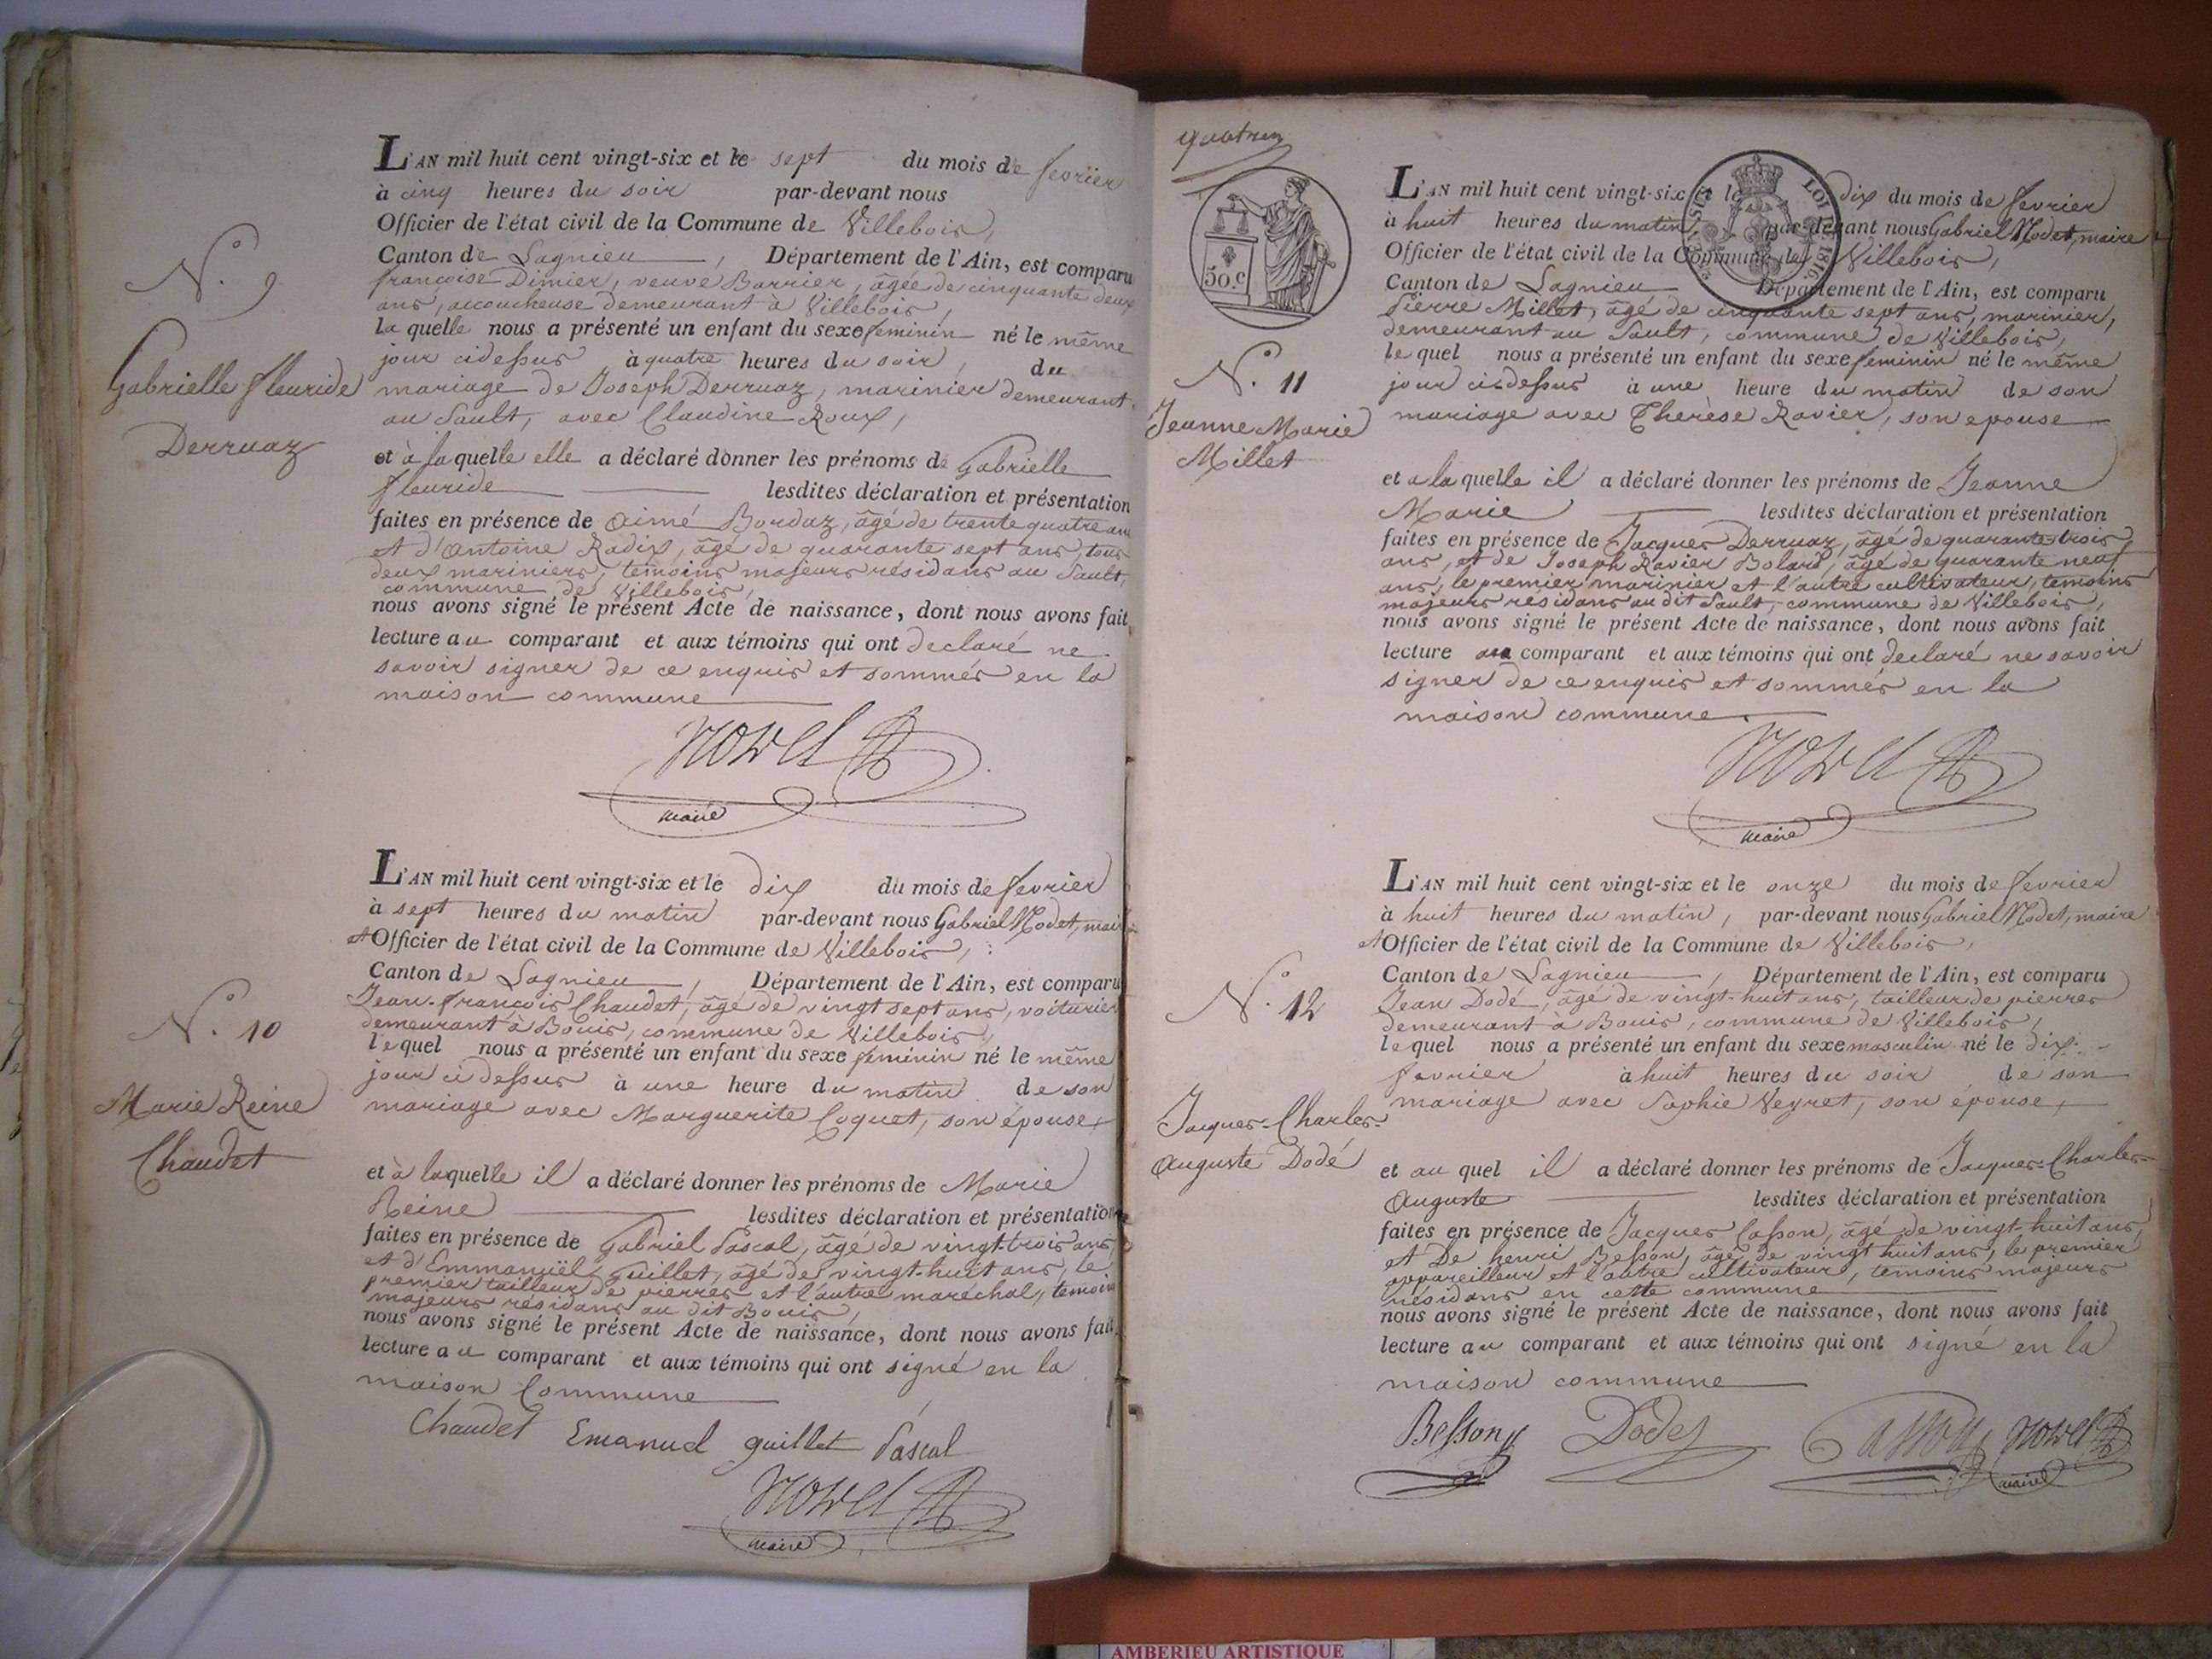 N.° 9
Gabrielle fleuride
Derruaz
L'AN mil huit cent vingt-six et le sept du mois de fevrier
à cinq heures du soir par-devant nous
Officier de l'état civil de la Commune de Villebois,
Canton de Lagnieu, Département de l'Ain, est comparu
françoise Dimier, veuve Barrier, âgée de cinquante deux
ans, accoucheuse demeurant à Villebois,
la quelle nous a présenté un enfant du sexe feminin né le même
jour cidessus à quatre heures du soir, du
mariage de Joseph Derruaz, marinier demeurant
au Sault, avec Claudine Roux,
et à laquelle elle a déclaré donner les prénoms de Gabrielle
fleuride lesdites déclaration et présentation
faites en présence de Aimé Bordaz, âgé de trente quatre ans
et d'Antoine Radix, âgé de quarante sept ans, tous
deux mariniers, temoins majeurs résidans au Sault,
commune de Villebois,
nous avons signé le présent Acte de naissance, dont nous avons fait
lecture au comparant et aux témoins qui ont declaré ne
savoir signer de ce enquis et sommés en la
maison commune
maire
N.° 10
Marie Reine
Chaudet
L'AN mil huit cent vingt-six et le dix du mois de fevrier
à sept heures du matin par-devant nous Gabriel Modet, maire
et Officier de l'état civil de la Commune de Villebois,
Canton de Lagnieu, Département de l'Ain, est comparu
Jean-françois Chaudet, âgé de vingt sept ans, voiturier
demeurant à Bouis, commune de Villebois,
lequel nous a présenté un enfant du sexe feminin né le même
jour ci dessus à une heure du matin de son
mariage avec Marguerite Coquet, son épouse,
et à laquelle il a déclaré donner les prénoms de Marie
Reine lesdites déclaration et présentation
faites en présence de Gabriel Pascal, âgé de vingt-trois ans
et d'Emmanüel Guillet, âgé de vingt-huit ans, le
premier tailleur de pierres et l'autre marechal, temoins
majeurs résidans au dit Bouis,
nous avons signé le présent Acte de naissance, dont nous avons fait
lecture au comparant et aux témoins qui ont signé en la
maison Commune
Chaudet Emanuel guillet Pascal
maire
50.c
LOI DE 1816.
N.° 11
Jeanne Marie
Millet
L'AN mil huit cent vingt-six et le dix du mois de fevrier
à huit heures du matin, par-devant nous Gabriel Modet, maire
Officier de l'état civil de la Commune de Villebois,
Canton de Lagnieu Département de l'Ain, est comparu
Pierre Millet, âgé de cinquante sept ans, marinier,
demeurant au Sault, commune de Villebois,
le quel nous a présenté un enfant du sexe feminin né le même
jour cidessus à une heure du matin de son
mariage avec Therèse Ravier, son epouse
et a la quelle il a déclaré donner les prénoms de Jeanne
Marie lesdites déclaration et présentation
faites en présence de Jacques Derruaz, âgé de quarante-trois
ans, et de Joseph Ravier Bolard, âgé de quarante neuf
ans, le premier marinier et l'autre cultivateur, temoins
majeurs résidans au dit Sault, commune de Villebois,
nous avons signé le présent Acte de naissance, dont nous avons fait
lecture au comparant et aux témoins qui ont declaré ne savoir
signer de ce enquis et sommés en la
maison commune.
maire
N.° 12
Jacques-Charles-
Auguste Dodé
L'AN mil huit cent vingt-six et le onze du mois de fevrier
à huit heures du matin, par-devant nous Gabriel Modet, maire
et Officier de l'état civil de la Commune de Villebois,
Canton de Lagnieu, Département de l'Ain, est comparu
Jean Dodé, âgé de vingt-huit ans, tailleur de pierres
demeurant à Bouis, commune de Villebois,
lequel nous a présenté un enfant du sexe masculin né le dix
fevrier à huit heures du soir de son
mariage avec Sophie Veyret, son épouse,
et au quel il a déclaré donner les prénoms de Jacques-Charles-
Auguste lesdites déclaration et présentation
faites en présence de Jacques Casson, âgé de vingt-huit ans,
et De henri Besson, âgé de vingt huit ans, le premier
appareilleur et l'autre cultivateur, temoins majeurs
résidans en cette commune
nous avons signé le présent Acte de naissance, dont nous avons fait
lecture au comparant et aux témoins qui ont signé en la
maison commune
Besson Dodé Casson
maire
AMBERIEU ARTISTIQUE